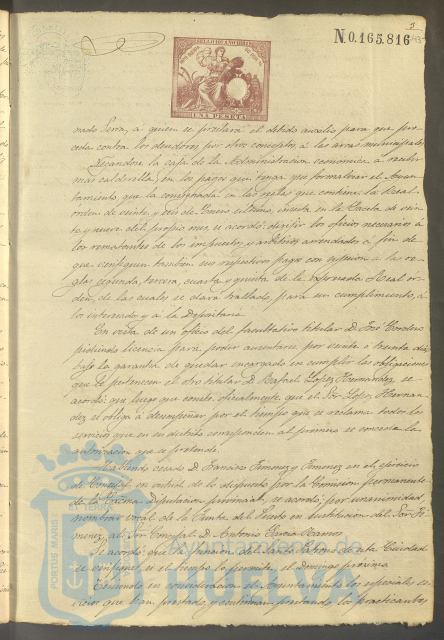 5
N.0.165.816
UNA PESETA
nado Serra, á quien se prestará el debido auxilio para que pro-
ceda contra los deudores por otros conceptos, á las arcas municipales
Negandose la caja de la Administracion económica á recibir
mas calderilla, en los pagos que tenga que formalizar el Ayun-
tamiento que la consignada en las reglas que contiene la Real
orden de veinte y seis de Enero último, inserta en la Gaceta de vein-
te y nueve del propio mes, se acordó: dirigir los oficios necesarios á
los rematantes de los impuestos y arbitrios arrendados á fin de
que verifiquen tambien sus respectivos pagos con sujecion á las re-
glas segunda, tercera, cuarta y quinta de la espresada Real or-
den, de las cuales se dará traslado para su cumplimiento, á
los interesados y á la Depositaria
En vista de un oficio del facultativo titular D. José
pidiendo licencia para poder ausentarse por veinte ó treinta dias
bajo la garantia de quedar encargado en cumplir las obligaciones
que le pertenecen el otro titular D. Rafael Lopez Hernandez, se
acordó: que luego que conste oficialmente que el Sor. Lopez Hernan-
dez se obliga á desempeñar por el tiempo que se reclama todos los
servicios que en su distrito corresponden al primero se conceda la
autorizacion que se pretende.
Habiendo cesado D. Francisco Jimenez y Jimenez en el ejercicio
de Concejal en virtud de lo dispuesto por la Comision permanente
de la Excma. Diputacion provincial, se acordó por unanimidad,
nombrar vocal de la Junta del Puerto en sustitucion del Sor. Ji-
menez, al Sor. Concejal D. Antonio Garcia Ramos
Se acordó que la funcion de la Santa Patrona de esta Ciudad
se verifique si el tiempo lo permite, el domingo próximo
Teniendo en consideracion el Ayuntamiento los especiales ser-
vicios que han prestado y continúan prestando los practicantes
PORTUS MARIS ET TERRAE
Ayuntamiento de
HUELVA